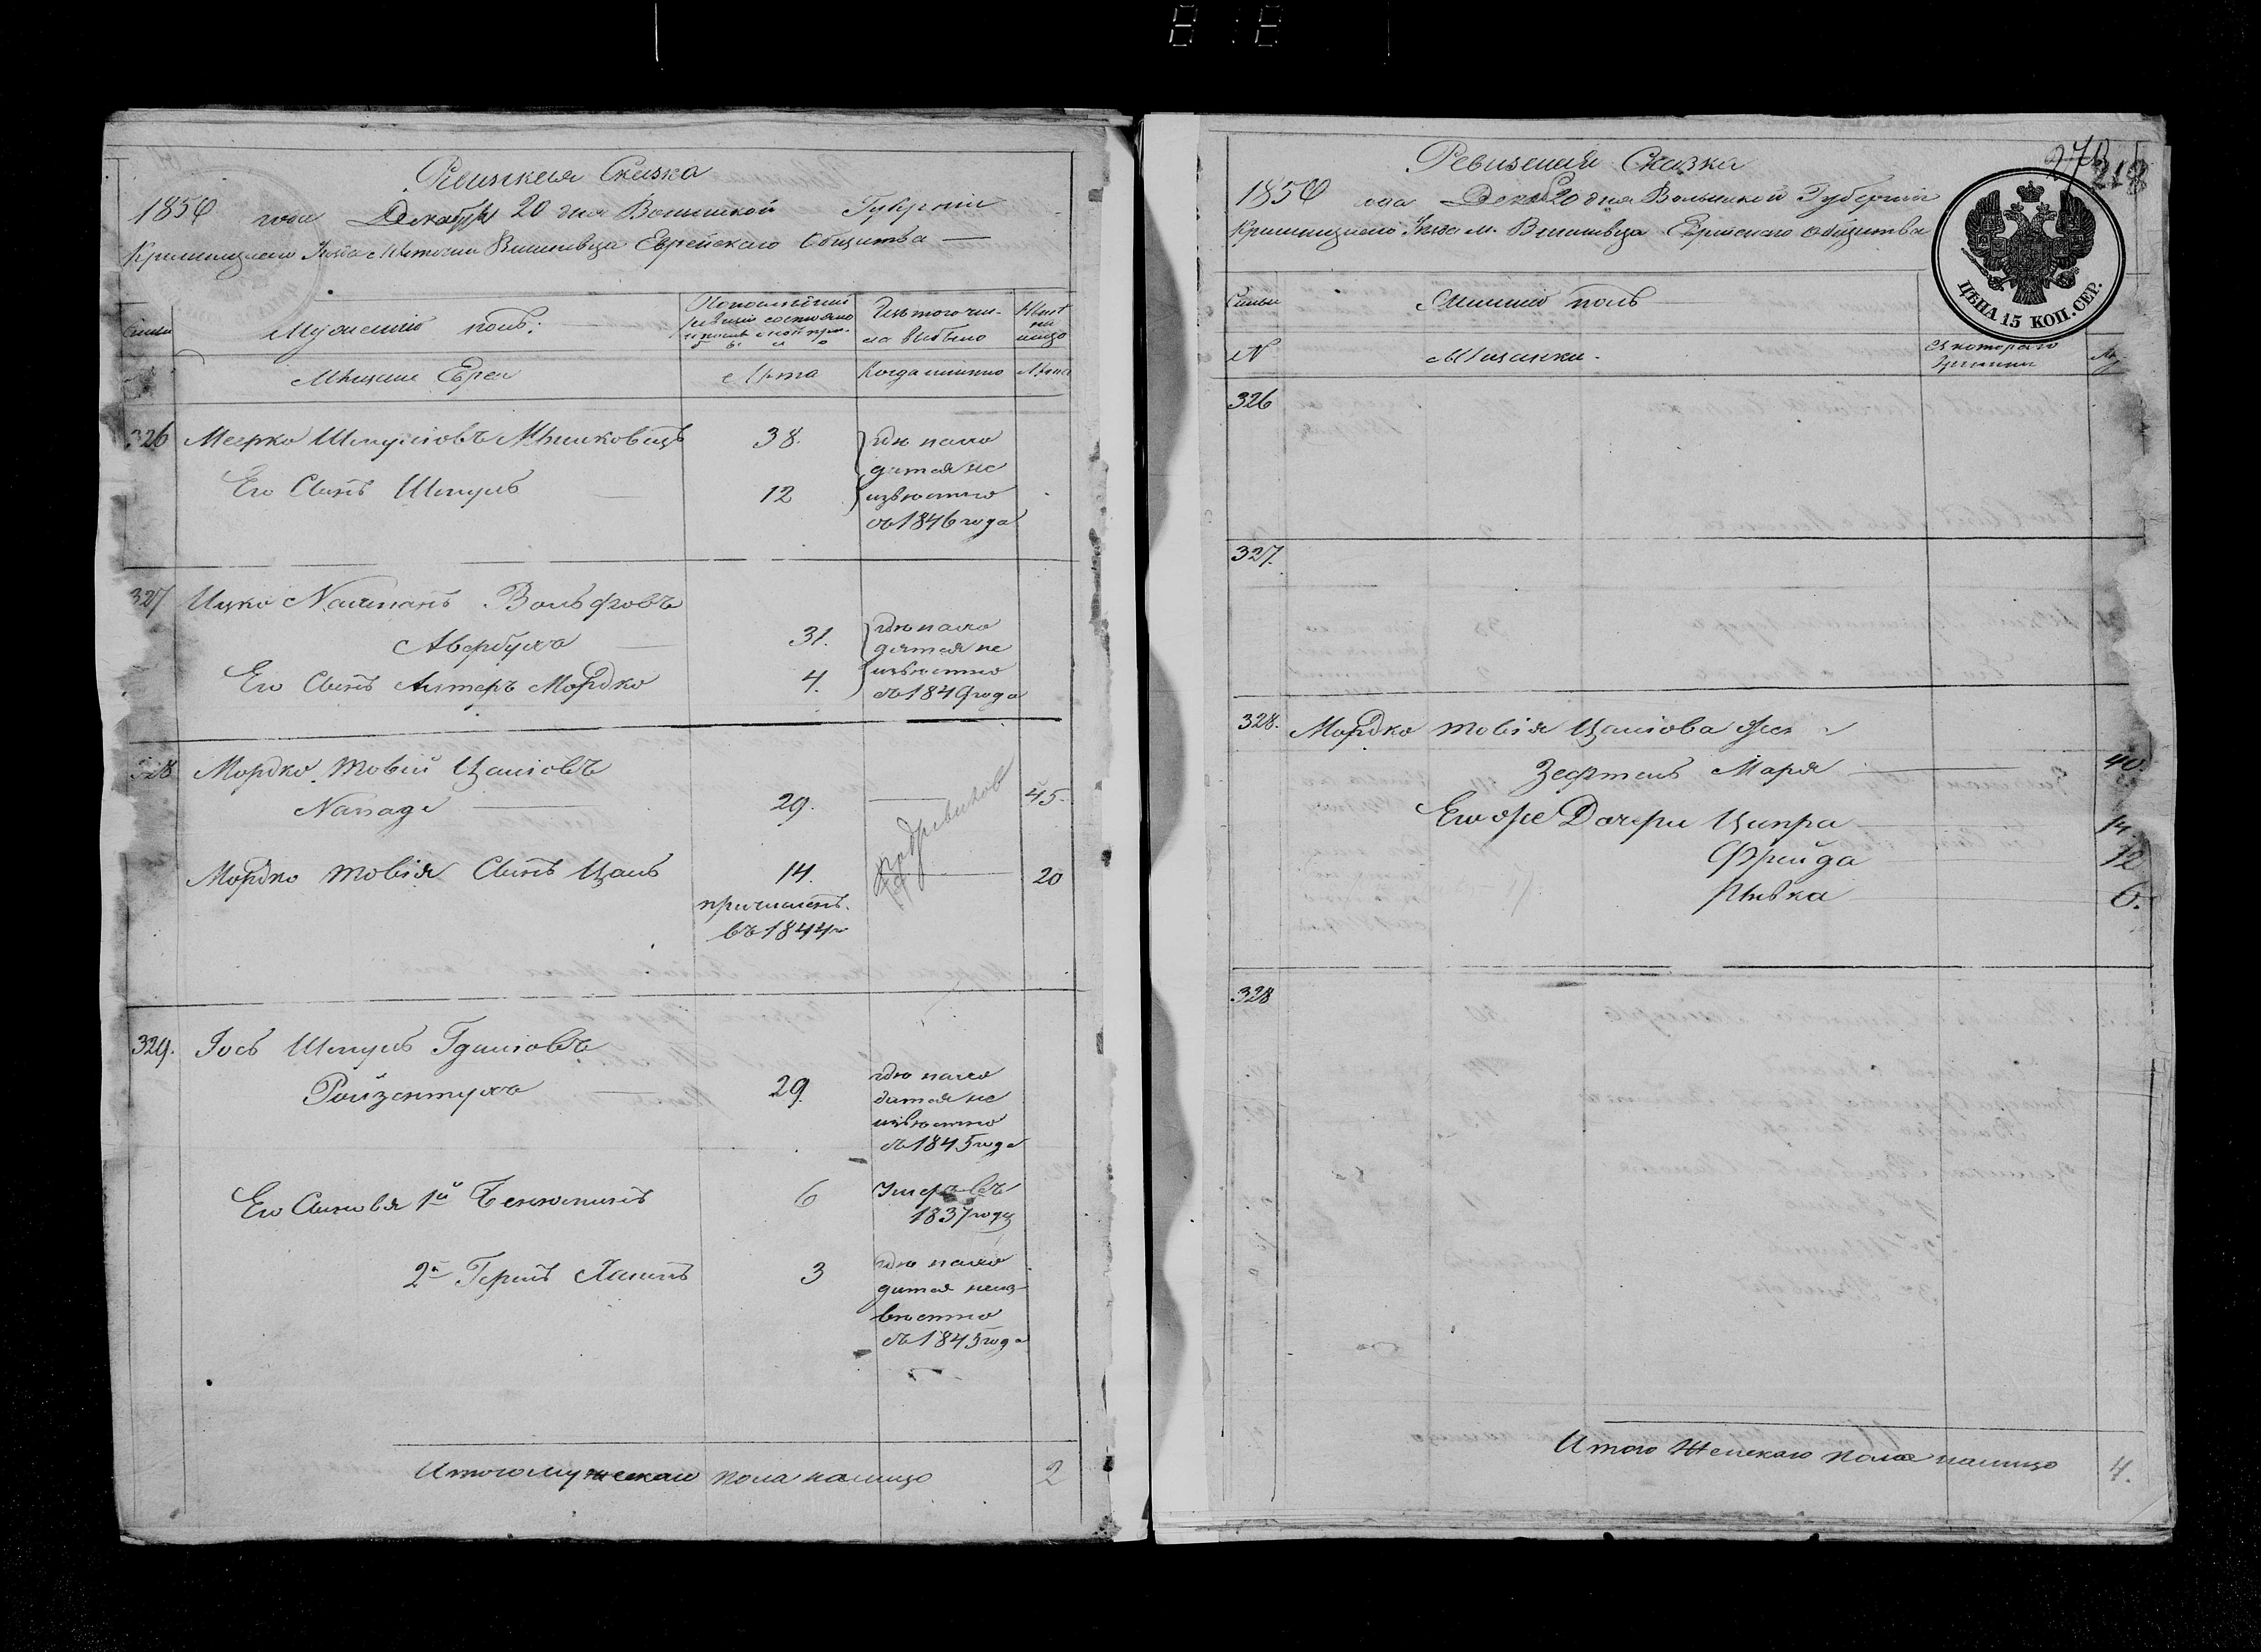 Ревизская Сказка
1850 года Декабря 20 дня Волынской Губернии
Кременецкаго Уѣзда Местечки Вишневца Еврейскаго Общества
Семьи
Мужеский полъ:
По последней ревизии состояло и после оной прибыло
Изъ того числа выбыло
Ныне на лицо
Мѣщане Евреи
Лѣта
Когда именно
Лѣта
326 Меерко Шмулiовъ 38.
Его Сынъ Шмуль 12
где нахо
дятся не
извѣстно
съ 1846 года
327 Ицко Нахманъ Вольфовъ
Авербухъ 31.
Его Сынъ Алтеръ Мордко 4.
где нахо
дятся не
извѣстно
съ 1849 года
328 Мордко Товiй Цалiовъ
29. 45.
Мордко Товiя Сынъ Цаль 14. 20
причисленъ
въ 1844
329. Iось Шмуль
Ройзентухъ 29.
где нахо
дится не
извѣстно
съ 1845 года
Его Сыновья 1й Бенюминъ 6
Умеръ въ
1837 году
2й Хаимъ 3
где нахо
дится неиз
вѣстно
съ 1845 года
Итого мужескаго пола налицо 2
Ревизская Сказка
218
1850 года Декаб 20 дня Волынской Губернии
Кременецкаго Уѣзда м. Вишневца Еврейскаго общества
ЦѢНА 15 КОП. СЕР.
Семьи
Женский полъ
N
Мѣщанки.
326
327.
328. Мордко Товiя Цалiова жена
Марья 40.
Его же Дочери Ципра 14.
Фрейда 12
Ривка 6.
328
Итого Женскаго пола налицо 4.